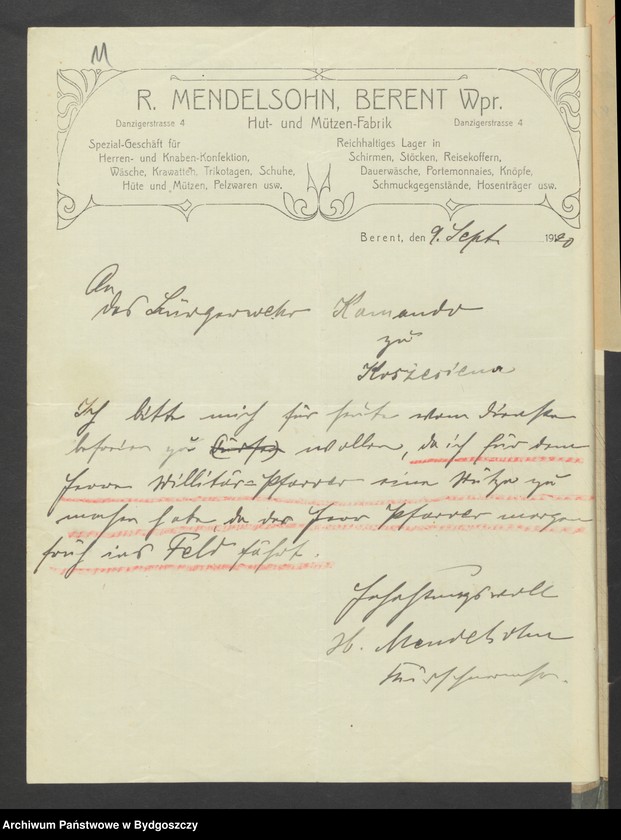 M
R. MENDELSOHN, BERENT Wpr.
Danzigerstrasse 4 Hut- und Mützen-Fabrik Danzigerstrasse 4
Spezial-Geschäft für
Herren- und Knaben-Konfektion,
Wäsche, Krawatten, Trikotagen, Schuhe,
Hüte und Mützen, Pelzwaren usw.
Reichhaltiges Lager in
Schirmen, Stöcken, Reisekoffern,
Dauerwäsche, Portemonnaies, Knöpfe,
Schmuckgegenstände, Hosenträger usw.
Berent, den 9. Sept. 1920
An
das Bürgerwehr Komando
zu
Ich bitte mich für heute vom Dienste
befreien zu wollen, da ich für dem
Herrn Militär=Pfarrer eine Mütze zu
machen habe, da der Herr Pfarrer morgen
früh ins Feld fährt.
Hochachtungsvoll
H. Mendelsohn